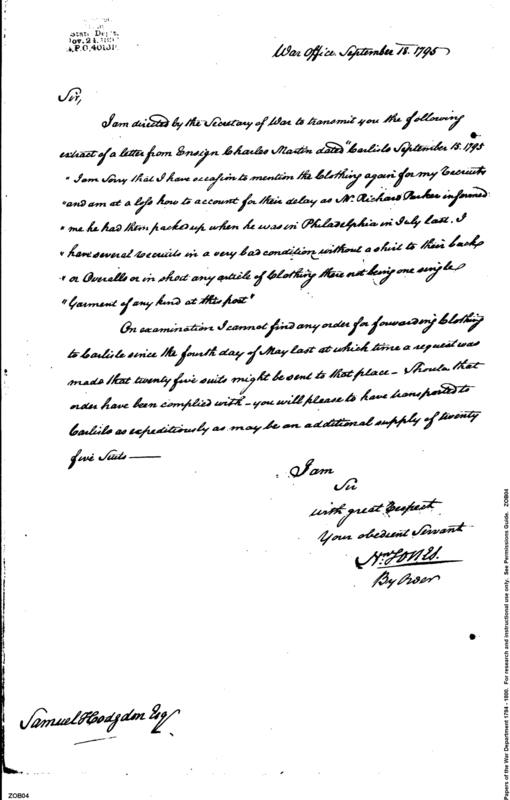 State Dep't.
Nov. 24, 189
A.P.O. 4013
War Office September 18. 1795
Sir,
I am directed by the Secretary of War to transmit you the following
extract of a letter from Ensign Charles Martin dated "Carlisle September 15. 1795
"I am Sorry that I have occasion to mention the Clothing again for my Recruits
"and am at a loss how to account for their delay as Mr. Richard Parker informed
"me he had them packed up when he was in Philadelphia in July last. I
"have several recruits in a very bad condition without a shirt to their backs
"or Overalls or in short any article of Clothing there not being one single
"Garment of any kind at this post"
On examination I cannot find any order for forwarding Clothing
to Carlisle since the fourth day of May last at which time a request was
made that twenty five suits might be sent to that place - Should that
order have been complied with - you will please to have transported to
Carlisle as expeditiously as may be an additional supply of twenty
five Suits —
I am
Sir
with great Respect
Your obedient Servant
Jones.
By Order
Samuel Hodgdon Esq
ZOB04
Papers of the War Department 1784 - 1800. For research and instructional use only. See Permissions Guide. ZOB04